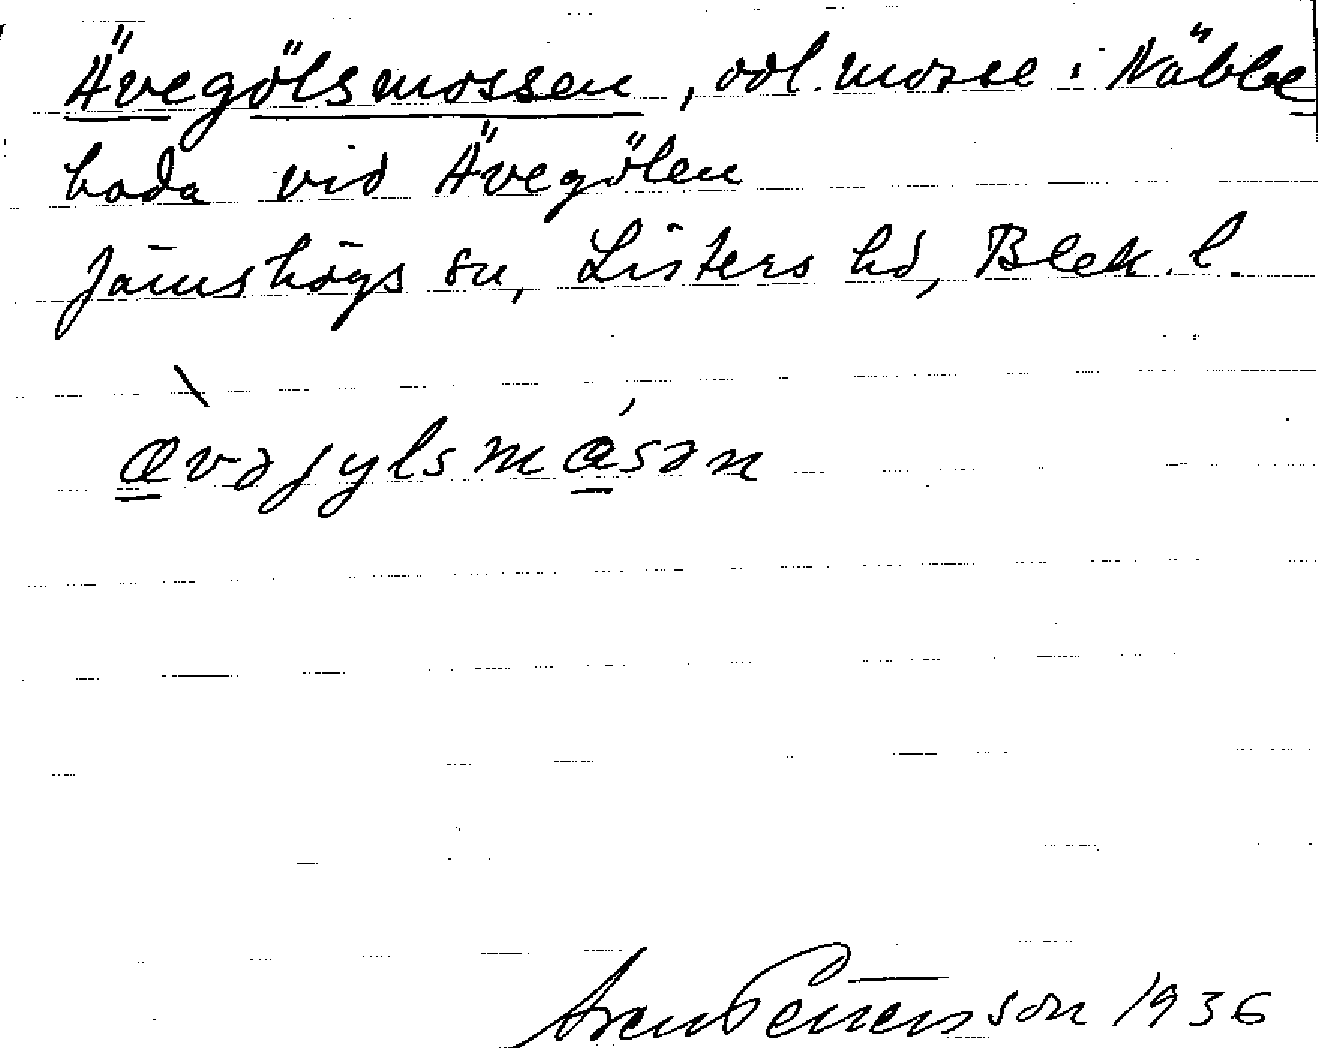 Ävegölsmossen, odl. mosse i Näbbe
boda vid Ävegölen
Jämshögs sn, Listers hd, Blek. l.
ævəjylsmåsən
Pettersson 1936